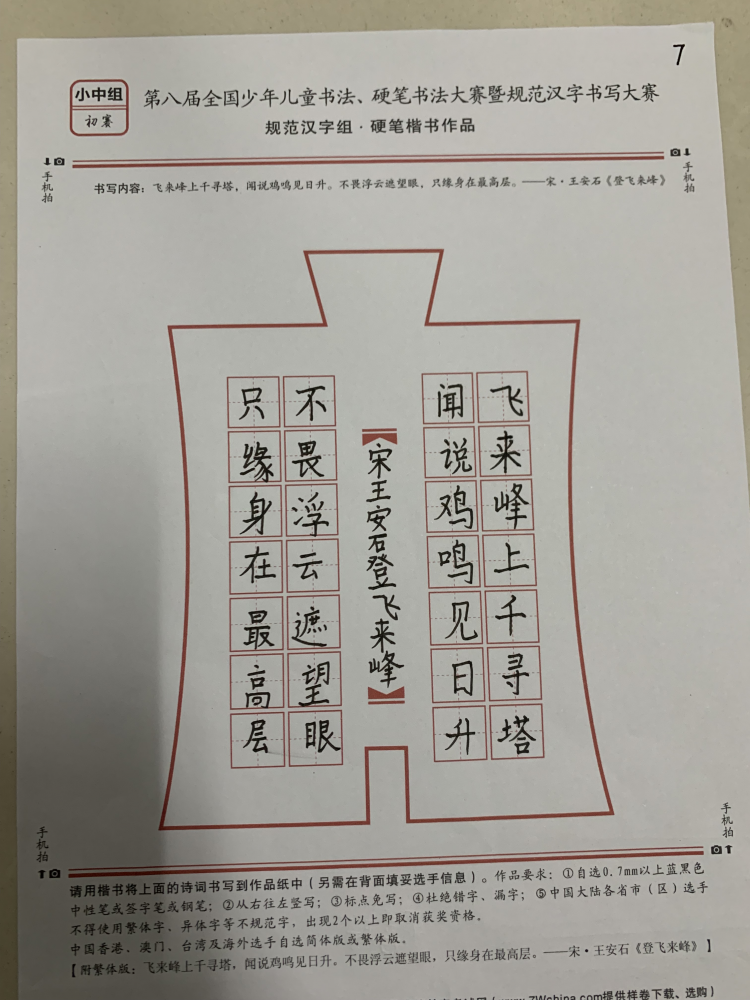 7
小中组
初赛
第八届全国少年儿童书法、硬笔书法大赛暨规范汉字书写大赛
规范汉字组·硬笔楷书作品
手机拍
手机拍
书写内容：飞来峰上千寻塔，闻说鸡鸣见日升。不畏浮云遮望眼，只缘身在最高层。——宋·王安石《登飞来峰》
飞来峰上千寻塔
闻说鸡鸣见日升
宋王安石登飞来峰
不畏浮云遮望眼
只缘身在最高层
手机拍
手机拍
请用楷书将上面的诗词书写到作品纸中（另需在背面填妥选手信息）。作品要求：①自选0.7mm以上蓝黑色
中性笔或签字笔或钢笔；②从右往左竖写；③标点免写；④杜绝错字、漏字；⑤中国大陆各省市（区）选手
不得使用繁体字、异体字等不规范字，出现2个以上即取消获奖资格。
中国香港、澳门、台湾及海外选手自选简体版或繁体版。
【附繁体版：飞来峰上千寻塔，闻说鸡鸣见日升。不畏浮云遮望眼，只缘身在最高层。——宋·王安石《登飞来峰》】
www.ZWchina.com提供样卷下载、选购）